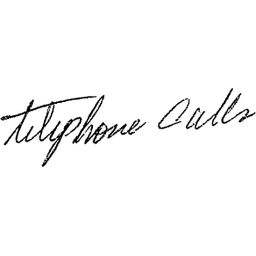 telephone calls